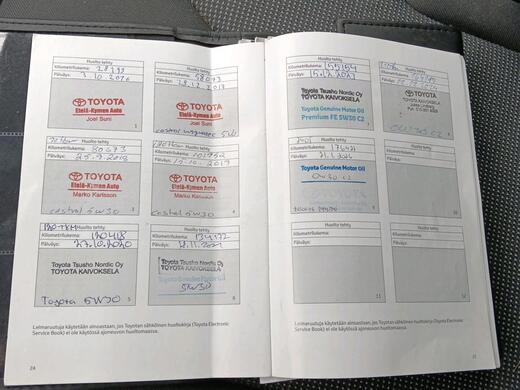 Huolto tehty
Kilometrilukema: 28199
Päiväys: 3.10.2016
TOYOTA
Etelä-Kymen Auto
Joel Suni
1
Huolto tehty
Kilometrilukema: 58093
Päiväys:
TOYOTA
Etelä-Kymen Auto
Joel Suni
castrol 5W30
Huolto tehty
Kilometrilukema: 80573
Päiväys: 25.9.2018
TOYOTA
Etelä-Kymen Auto
Marko Karlsson
castrol 5w30
3
Huolto tehty
Kilometrilukema: 101952
Päiväys: 10.2019
TOYOTA
Etelä-Kymen Auto
Marko Karlsson
Castrol 5w30
4
Huolto tehty
Kilometrilukema: 120418
Päiväys: 27.10.2020
Toyota Tsusho Nordic Oy
TOYOTA KAIVOKSELA
Toyota 5W30
5
Huolto tehty
Kilometrilukema: 134172
Päiväys: 11.2021
Toyota Tsusho Nordic Oy
TOYOTA KAIVOKSELA
Toyota Genuine Motor Oil
5W30
6
Leimaruutuja käytetään ainoastaan, jos Toyotan sähköinen huoltokirja (Toyota Electronic
Service Book) ei ole käytössä ajoneuvon huoltomaassa.
24
Huolto tehty
Kilometrilukema: 155154
Päiväys:
Toyota Tsusho Nordic Oy
TOYOTA KAIVOKSELA
Toyota Genuine Motor Oil
Premium FE 5W30 C2
Huolto tehty
Kilometrilukema:
Päiväys:
TOYOTA
Huolto tehty
Kilometrilukema: 176421
Päiväys:
Toyota Genuine Motor Oil
0W30 C2
10
Huolto tehty
Kilometrilukema:
Päiväys:
11
Huolto tehty
Kilometrilukema:
Päiväys:
12
Leimaruutuja käytetään ainoastaan, jos Toyotan sähköinen huoltokirja (Toyota Electronic
Service Book) ei ole käytössä ajoneuvon huoltomaassa.